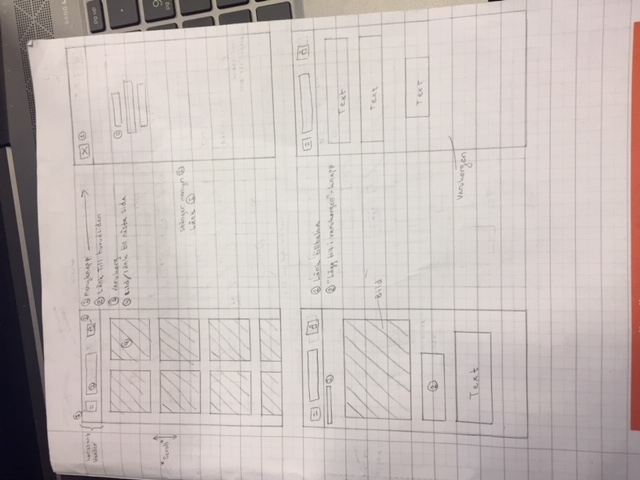 Konstant
Header
① Menyknapp
② Länk till huvudsidan
③ Varukorg
④ Bild/länk till nästa sida
"Scroll"
Stänger menyn ①
Länk ②
① Länk tillbaka
② "Lägg till i varukorgen"-knapp
Bild
Text
Text
Text
Text
Varukorgen